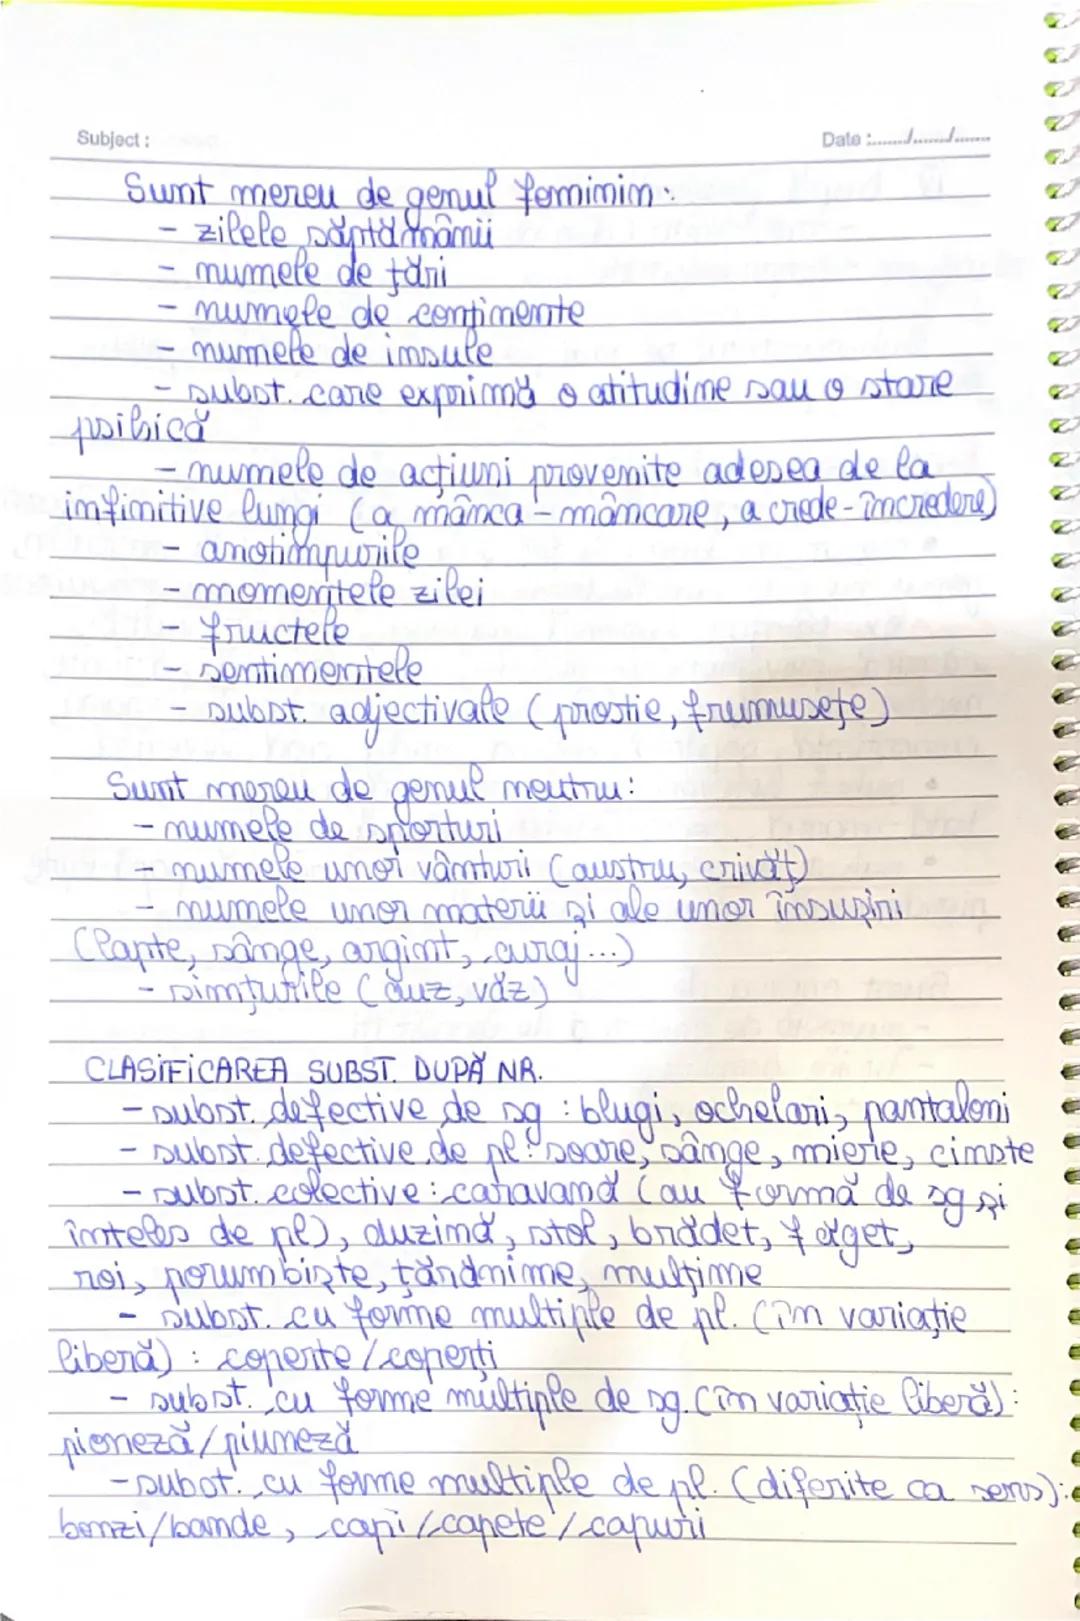 Subject :
Date :......../......../........
Sunt mereu de genul feminin:
- zilele săptămânii
- numele de țări
- numele de continente
- numele de insule
- subst. care exprimă o atitudine sau o stare
psihică
- numele de acțiuni provenite adesea de la
infinitive lungi (a mânca - mâncare, a crede - încredere)
- anotimpurile
- momentele zilei
- fructele
- sentimentele
- subst. adjectivale (prostie, frumusețe)
Sunt mereu de genul neutru:
- numele de sporturi
- numele unor vânturi (austru, crivăț)
- numele unor materii și ale unor însușiri
(lapte, sânge, argint, curaj...)
- simțurile (auz, văz)
CLASIFICAREA SUBST. DUPĂ NR.
- subst. defective de sg : blugi, ochelari, pantaloni
- subst. defective de pl: soare, sânge, miere, cinste
- subst. colective : caravană (au formă de sg și
înteles de pl), duzină, stol, brădet, făget,
roi, porumbiște, țărănime, mulțime
- subst. cu forme multiple de pl. (în variație
liberă) : coperte/coperți
- subst. cu forme multiple de sg. (în variație liberă):
pioneză/piuneză
- subst. cu forme multiple de pl. (diferite ca sens):
benzi/bande, capi/capete/capuri